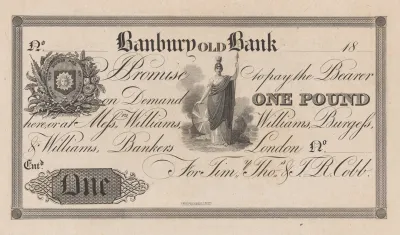 No. Banbury OLD Bank 18
I Promise to pay the Bearer
on Demand ONE POUND
here, or at Mess.rs Williams, Williams, Burgess,
& Williams, Bankers London No.
Ent.d For Tim.y Tho.s & T. R. Cobb.
One